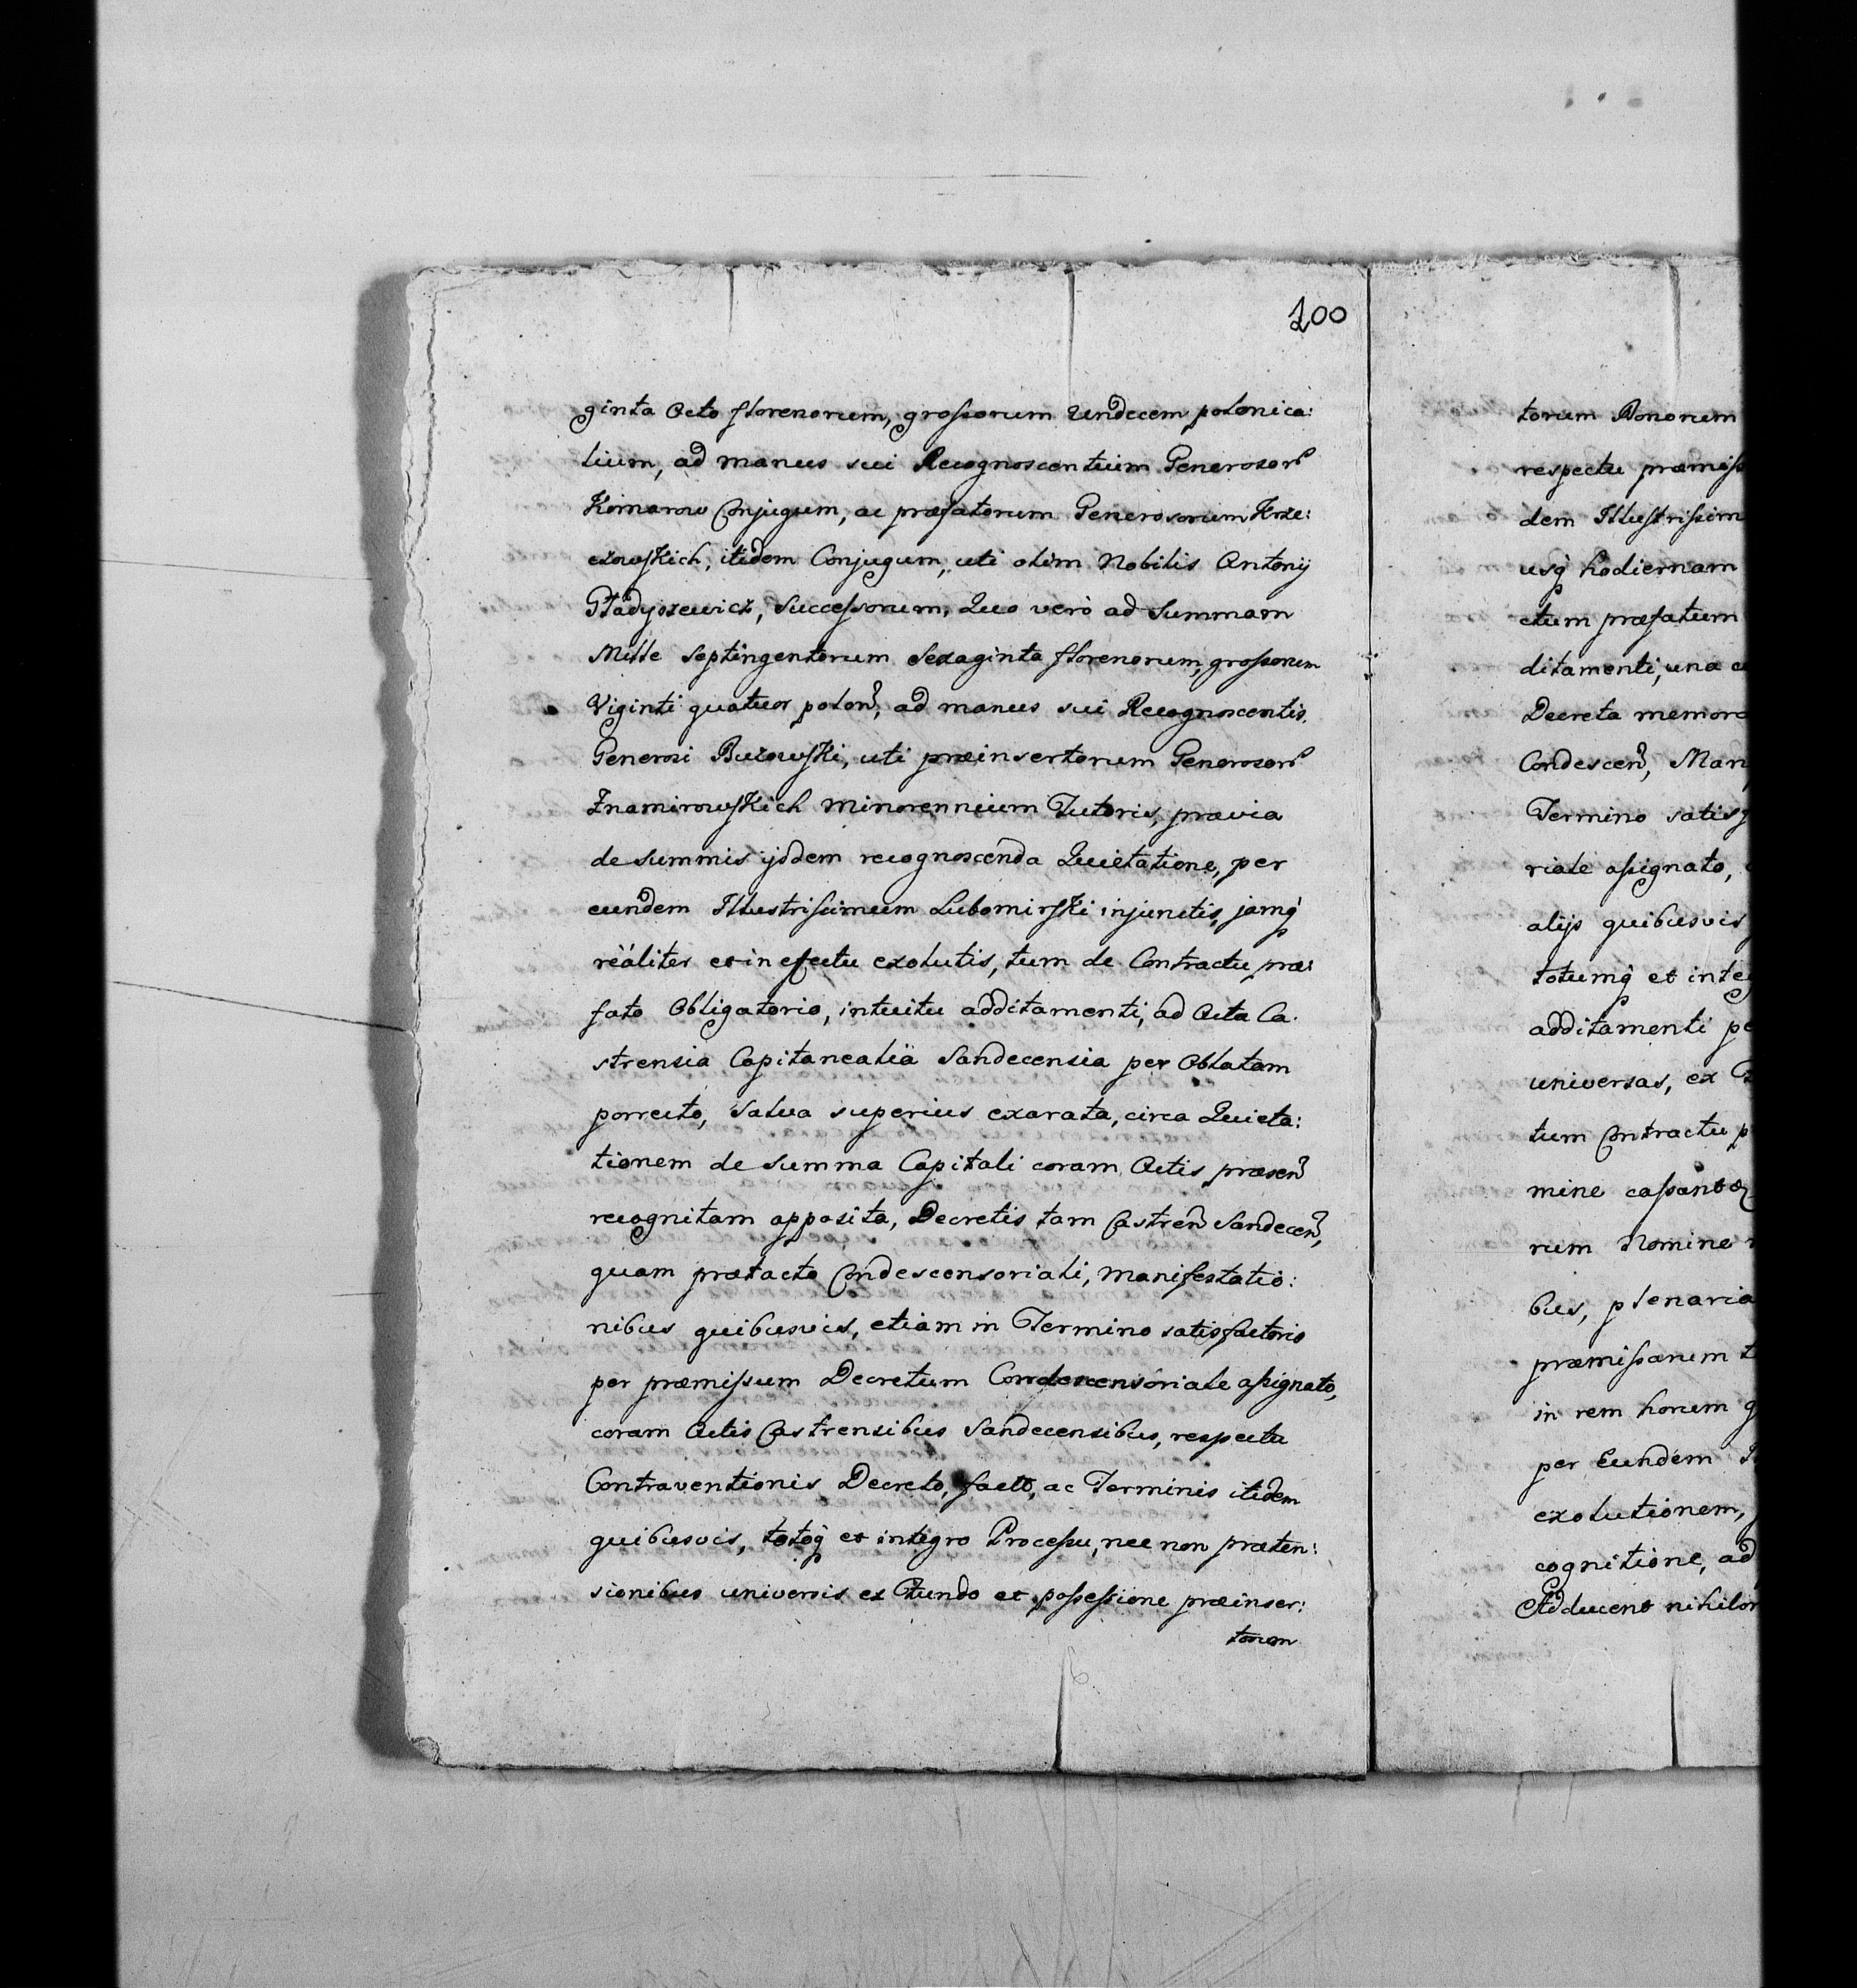 100
ginta Octo florenorum, grossorum Undecem polonica:
lium, ad manus sui Recognoscentium Generosor͂
Komarow Conjugum, ac præfatorum Generosorum Krze:
czowskich, itidem Conjugum, uti olim Nobilis Antonij
Gładyszewicz, Successorum, Quo verò ad Summam
Mille Septingentorum Sexaginta florenorum, grossorum
Viginti quatuor polon͂, ad manus sui Recognoscentis
Generosi Buzowski, uti præinsertorum Generosor͂
Znamirowskich minorennium Tutoris, prævia
de Summis ijsdem recognoscenda Quietatione, per
eundem Illustrissimum Lubomirski injunctis, jamq̀
reáliter et in effectu exolutis, tum de Contractu præ:
fato Obligatorio, intuitu additamenti, ad Acta Ca:
strensia Capitanealia Sandecensia per Oblatam
porrecto, Salva superius exarata, circa Quieta:
tionem de Summa Capitali coram Actis præsen͂
recognitam apposita, Decretis tam Castren͂ Sandecen͂,
quam prætacto Condescensoriali, manifestatio:
nibus quibusvis, etiam in Termino satisfactorio
per præmissum Decretum Condescensoriale assignato,
coram Actis Castrensibus Sandecensibus, respectu
Contraventionis Decreto, facto, ac Terminis itidem
quibusvis, totoq̀ et integro Processu, nec non præten:
sionibus universis ex Fundo et possessione præinser:
torum
torum Bonorum
respectu præmiss
dem Illustrissim
usq̀ hodiernam
ctum præfatum
ditamenti, una c
Decreta memora
Condescen͂, Man
Termino satisf
riale assignato,
alijs quibusvis
totumq̀ et integ
additamenti pe
universas, ex
tum Contractu p
mine cassant &
rum Nomine
bus, plenaria
præmissarum t
in rem horum g
per Eundem
exolutionem,
cognitione, ad
Adducens nihilom